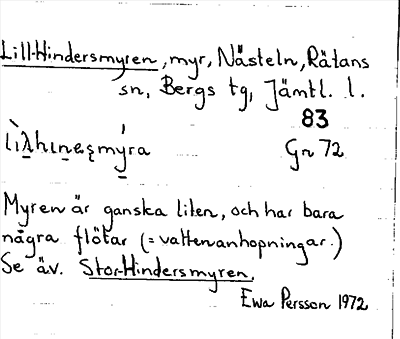 Lill-Hindersmyren, myr, Nästeln, Rätans
sn, Bergs tg, Jämtl. l.
83
Gn 72
Myren är ganska liten, och har bara
några flötar (= vattenanhopningar.)
Se äv. Stor-Hindersmyren.
Ewa Persson 1972